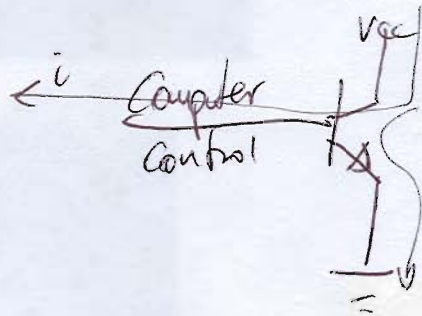 Vcc
i
Computer
Control